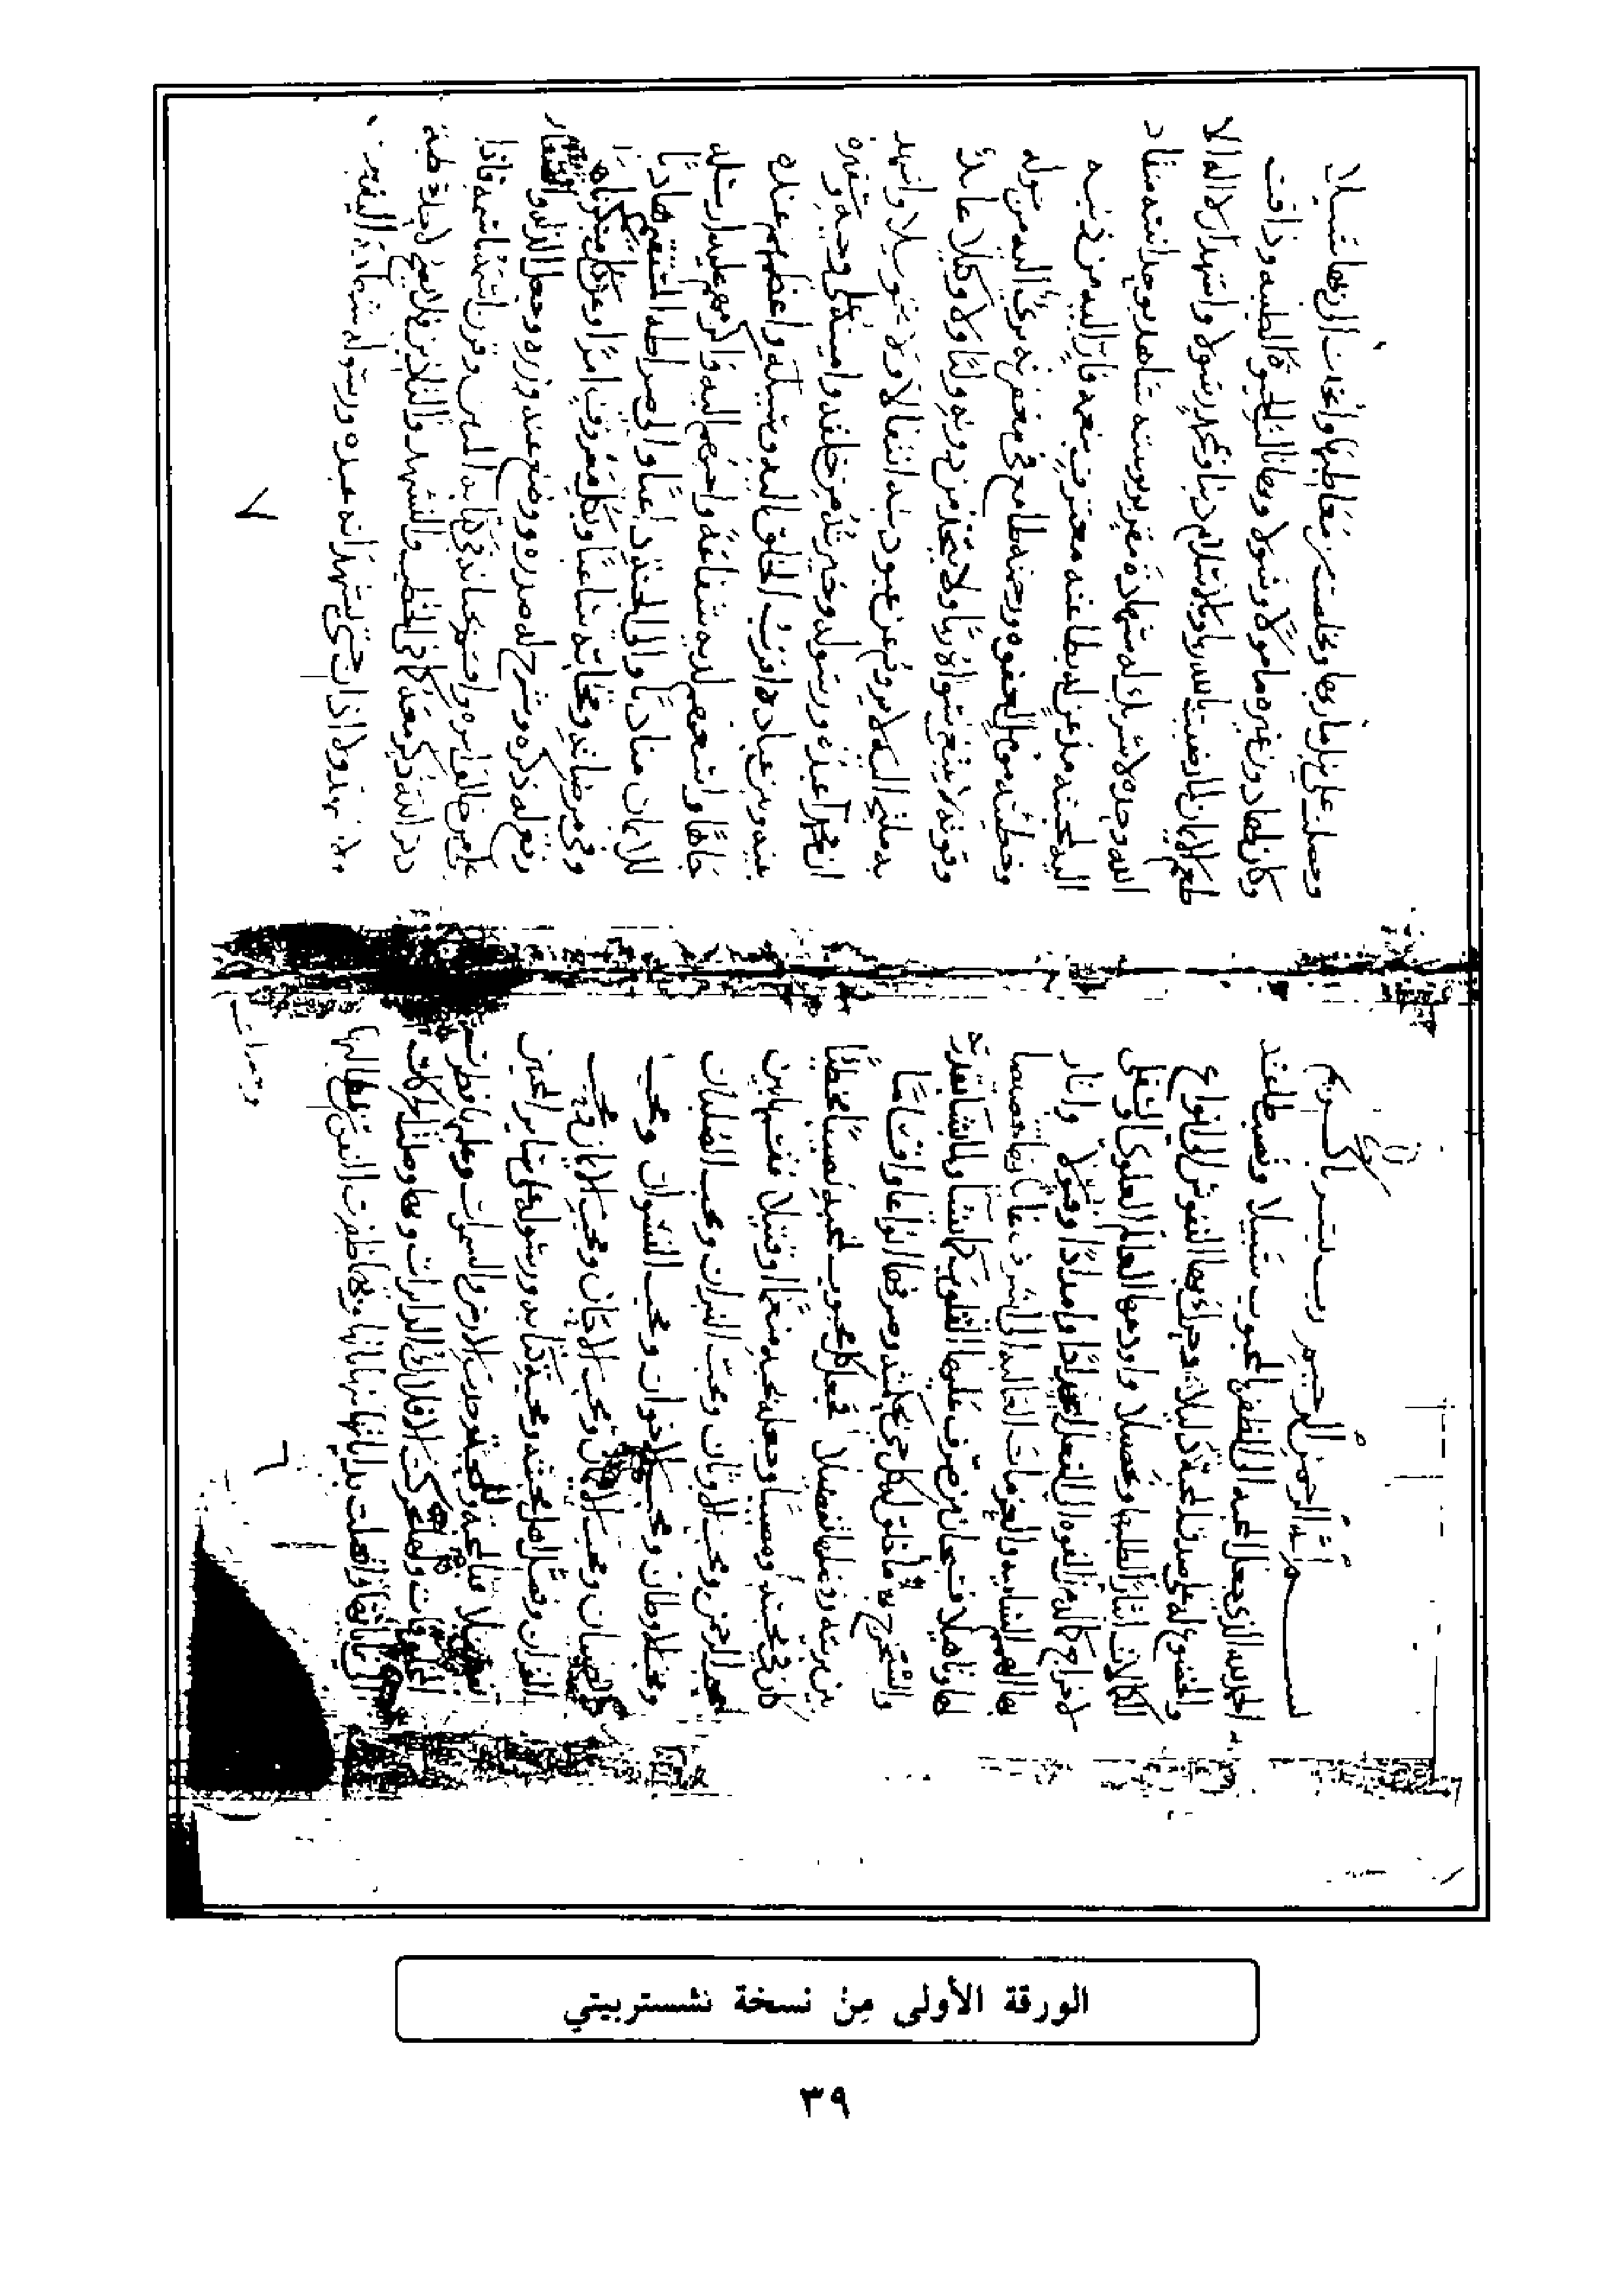 بسم الله الرحمن الرحيم رب يسر يا كريم
الحمد لله الذي جعل المحبة الى الظفر بالمحبوب سبيلا ونصب طاعته
والخضوع له على صدق المحبة دليلا وحرك بها النفوس الى انواع
الكمالات ايثارا لطلبها وتحصيلا واودعها العالم العلوي والسفلي
لاخراج كماله من القوة الى الفعل ايجادا وامدادا وقبولا واثار
بها الهمم السامية والعزمات العالية الى اشرف غاياتها تخصيصا
لها وتاهيلا فسبحان من صرف عليها القلوب كما يشا ولما يشا بقدرته
واستخرج بها ما خلق له كل حي بحكمته وصرفها انواعا واقساما
بين بريته وفصلها تفصيلا فجعل كل محبوب لمحبه نصيبا مخطئا
كان في محبته او مصيبا وجعله بحبه منعما او قتيلا فقسمها بين
محب الرحمن ومحب الاوثان ومحب النيران ومحب الصلبان
ومحب الاوطان ومحب الاخوان ومحب النسوان ومحب
الصبيان ومحب الاثمان ومحب الالحان ومحب الايمان ومحب
القران وفضل اهل محبته ومحبة كتابه ورسوله على ساير المحبين
تفضيلا فبالمحبة وللمحبة وجدت الارض والسموات وعليها فطرت
المخلوقات ولها تحركت الافلاك الدايرات وبها وصلت الحركات
الى غاياتها واتصلت بداياتها بنهاياتها وبها ظفرت النفوس بمطالبها
٦
وحصلت على نيل ماربها وتخلصت من معاطبها واتخذت الى ربها سبيلا
وكان لها دون غيره مامولا وسولا وبها نالت الحيوة الطيبة وذاقت
طعم الايمان لما رضيت بالله ربا وبالاسلام دينا وبمحمد رسولا واشهد ان لا اله الا
الله وحده لا شريك له شهادة مقر بربوبيته شاهد بوحدانيته منقاد
اليه لمحبته مذعن له بطاعته معترف بنعمه فار اليه من ذنبه
وخطيئته مومل لعفوه ورحمته طامع في مغفرته بريء اليه من حوله
وقوته لا يبتغي سواه ربا ولا يتخذ من دونه وليا ولا وكيلا عائذ
به ملتجئ اليه لا يروم عن عبوديته انتقالا ولا تحويلا واشهد
ان محمدا عبده ورسوله وخيرته من خلقه وامينه على وحيه وسفيره
بينه وبين عباده اقرب الخلق اليه وسيلة واعظمهم عنده
جاها واسمعهم لديه شفاعة واحبهم اليه واكرمهم عليه ارسله
للايمان مناديا والى الجنة داعيا والى صراطه المستقيم هاديا
وفي مرضاته ومحابه ساعيا وبكل معروف امرا وعن كل منكر ناهيا
رفع له ذكره وشرح له صدره ووضع عنه وزره وجعل الذلة والصغار
على من خالف امره واقسم بحياته في كتابه المبين وقرن اسمه باسمه فاذا
ذكر الله ذكر معه كما في الخطب والتشهد والتاذين فلا يصح لاحد خطبة
ولا تشهد ولا اذان حتى يشهد انه عبده ورسوله شهادة اليقين
٧
الورقة الأولى مِنْ نسخة تشستربيتي
٣٩